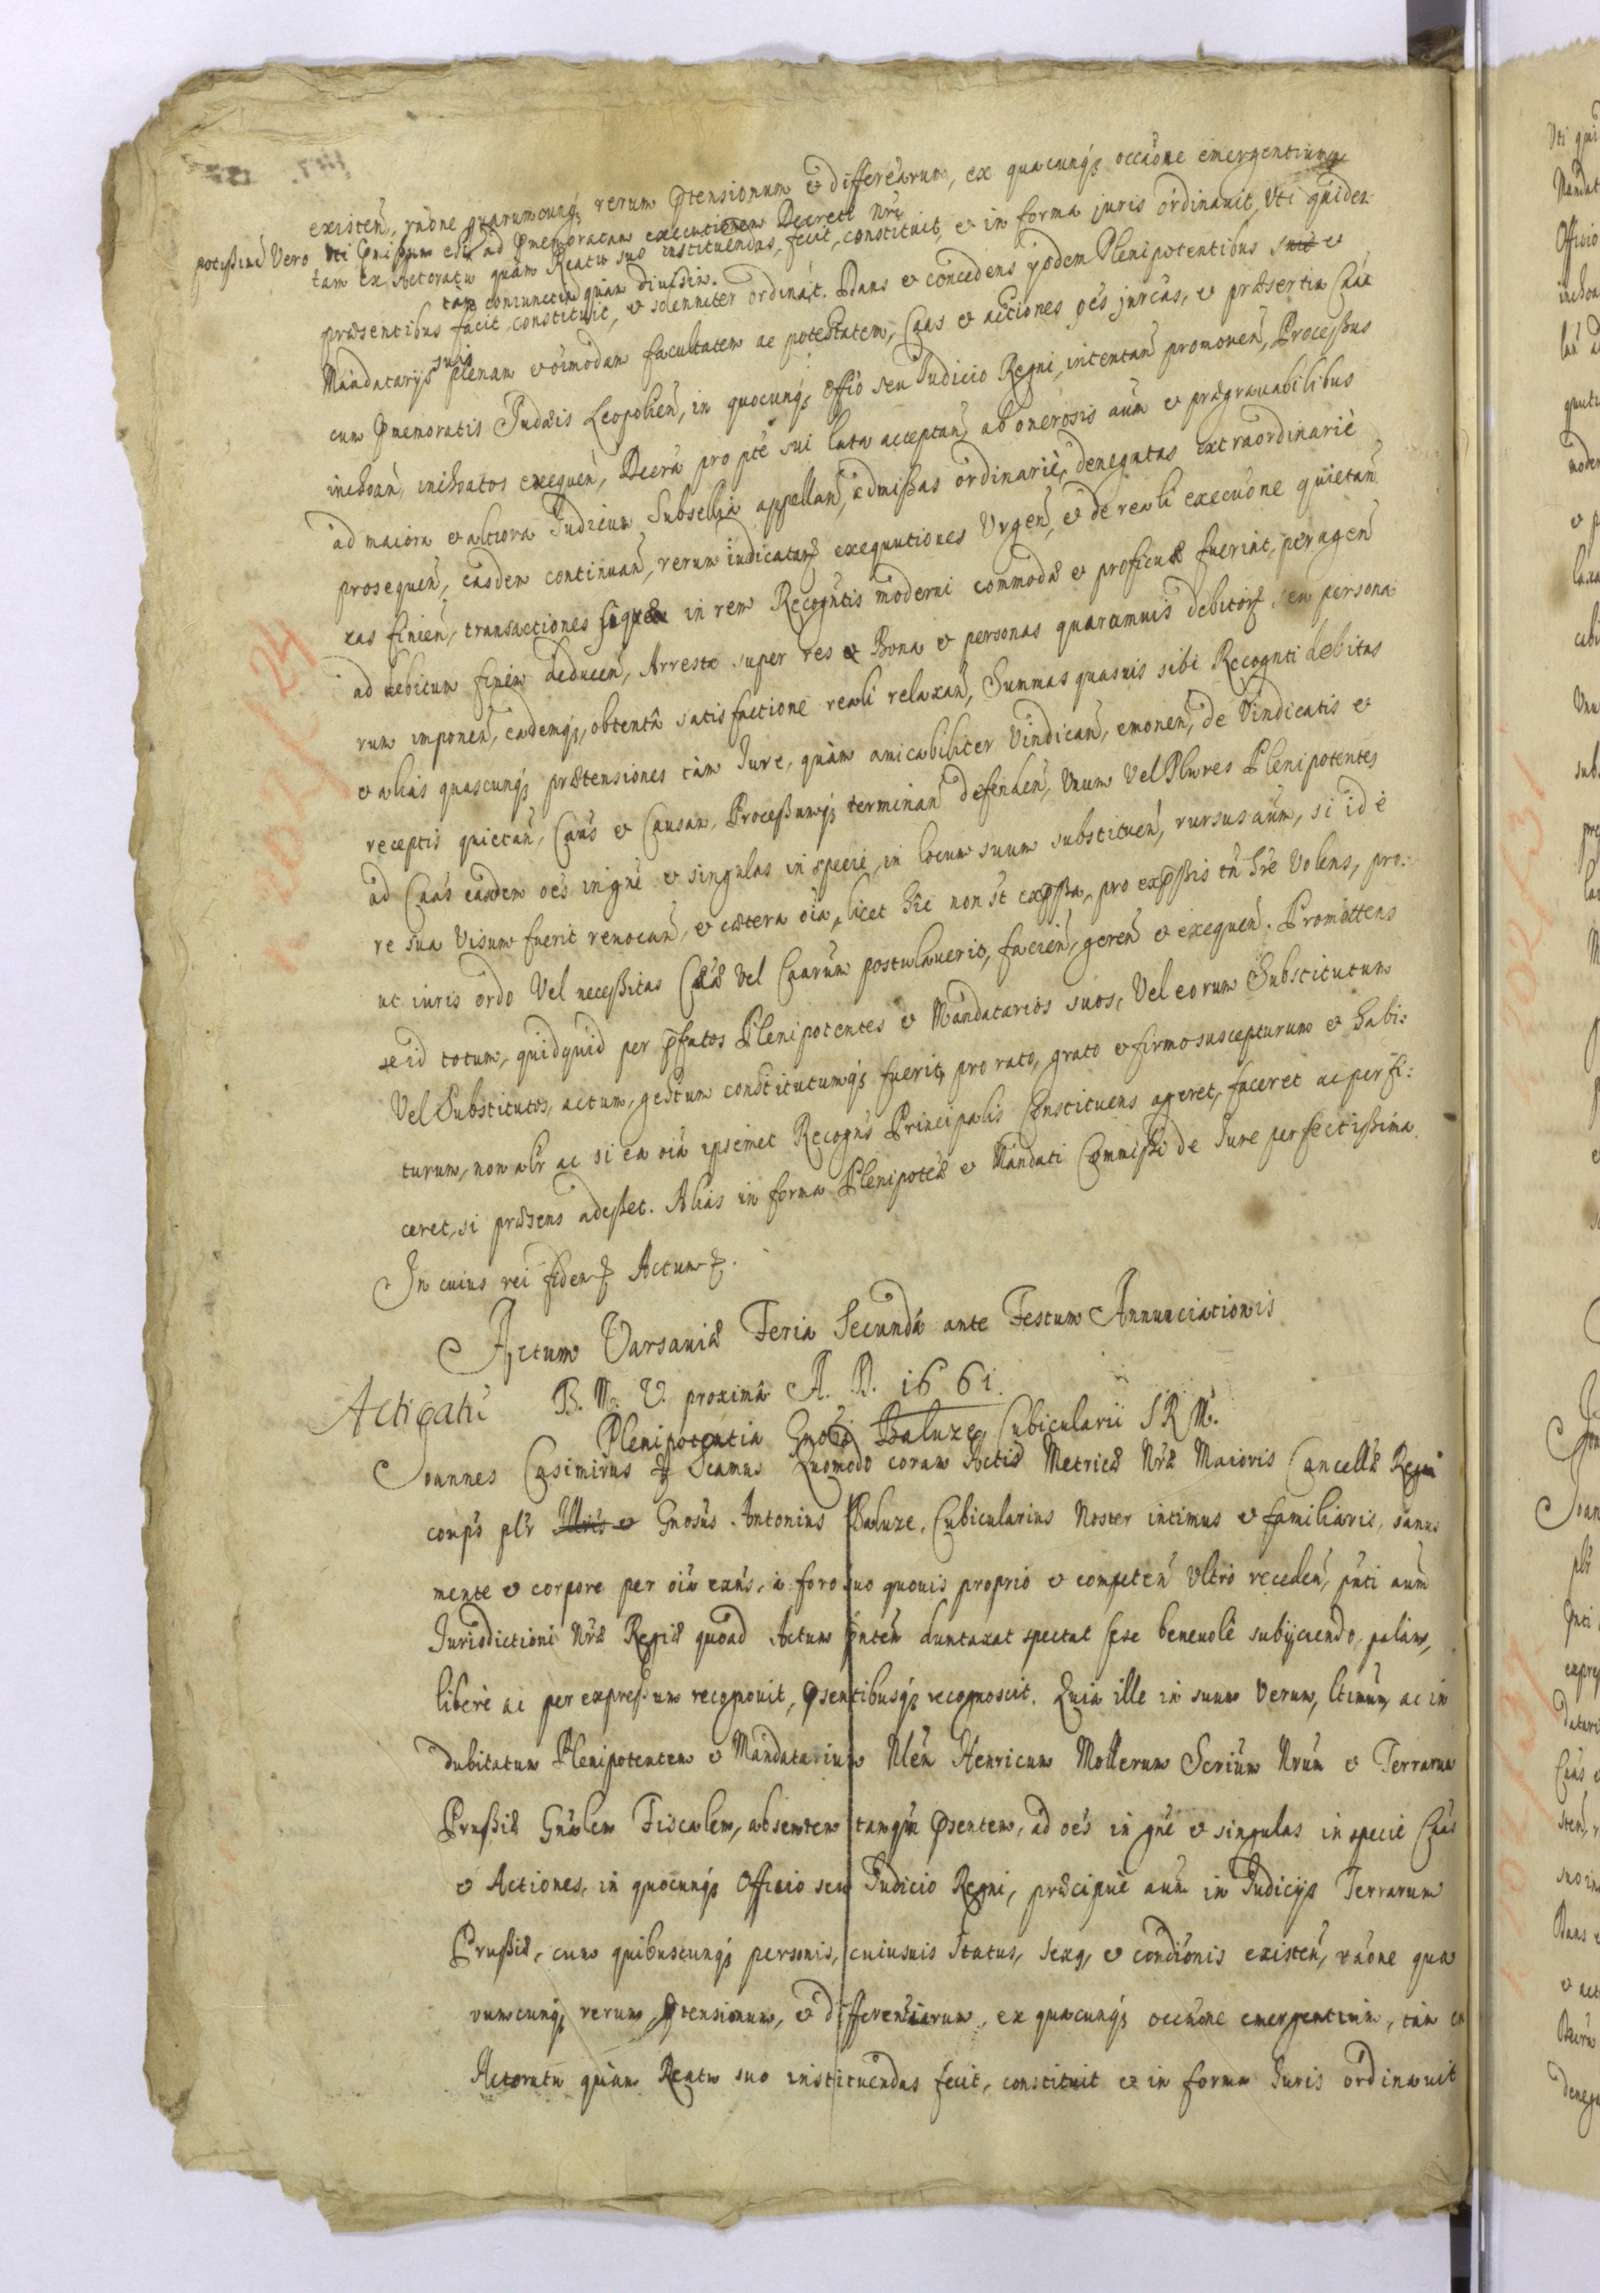 existen̄, rāōne quarumcunq̨ rerum p̄tensionum et differēārum, ex quacunq̨ occāōne emergentium
potissimè Vero uti p̄missum est ad p̄memoratam executionem Decreti Nrī
tam ex Actoratu quàm Reatu suo instituendas, fecit, constituit, et in forma juris ordinauit, Uti quidem
tam coniunctim quàm divisim.
præsentibus facit, constituit, et solenniter ordinat. Dans et concedens ijsdem Plenipotentibus suis et
Mandatarijs suis plenam et oīmodam facultatem ac potestatem, Cāās et actiones oēs jurēas, et præsertim Cāām
cum p̄memoratis Judæis Leopolien̄, in quocunq̨ Offō seu Judicio Regni, intentan̄ promouen̄, Processus
inchoan̄, inchoatos exequen̄, Decrā pro pte sui lata acceptan̄, ab onerosis aūm et prægrauabilibus
ad maiora et altiora Judicium Subsellia appellan̄, admissas ordinariè, denegatas extraordinariè
prosequen̄, easdem continuan̄, rerum iudicatarȝ exequutiones Urgen̄, et de reali execuōne quietan̄
eas finien̄, transactiones in rem Recogntis moderni commodæ et proficuæ fuerint, peragen̄
ad debitum finem deducen̄, Arresta super res et Bona et personas quarumuis debitorȝ seu persona-
rum imponen̄, eademq̨, obtentâ satisfactione reali relaxan̄, Summas quasuis sibi Recognti debitas
et alias quascunq̨ prætensiones tàm Jure, quàm amicabiliter Vindican̄, emonen̄, de Vindicatis et
receptis quietan̄, Cāās et Causam, Processumq̨ terminan̄ defenden̄, Unum Vel Plures Plenipotentes
ad Cāās easdem oēs in gn̄e et singulas in specie, in locum suum substituen̄, rursus aūm, si id è
re sua Visum fuerit reuocan̄, et cætera oīa, licet hīc non st̄ exp̄ssa, pro exp̄ssis tn̄ hr̄e Volens, pro:
ut iuris ordo Vel necessitas Cāæ Vel Caarum postulauerit, facien̄, geren̄ et exequen̄. Promittens
se id totum, quidquid per p̄fatos Plenipotentes et Mandatarios suos, Vel eorum Substitutum
Vel Substitutos, actum, gestum constitutumq̨ fuerit, pro rato, grato et firmo suscepturum et habi:
turum, non alr̄ ac si ea oīa ipsemet Recogns̄ Principalis Constituens ageret, faceret ac perfi:
ceret, si præsens adesset. Alias in forma Plenipotēæ et Mandati Commissi de Jure perfectissima.
In cuius rei fidem ꝛ Actum ꝛ.
Actum Varsaviæ Feria Secunda ante Festum Annunciationis
B. M. V. proximâ A. D. 1661.
Acticatū
Plenipotentia Gnosi Baluze Cubicularii S R M.
Joannes Casimirus ꝛ Scamus Quomodo coram Actis Metricæ Nræ Maioris Cancellæ Regni
comps̄ plr̄ Illris et Gnosus Antonius Baluze, Cubicularius Noster intimus et familiaris, sanus
mente et corpore per oīa exns̄, à foro suo quouis proprio et competen̄ Ultrò receden̄, p̄nti aūm
Jurisdictioni Nræ Regiæ quoad Actum p̄ntem duntaxat spectat sese beneuolè subijciendo, palam,
liberè ac per expressum recognouit, p̄sentibusq̨ recognoscit. Quia ille in suum Verum, ltimum, ac in
dubitatum Plenipotentem et Mandatarium Nlēm Henricum Mollerum Scrium Nrum et Terrarum
Prussiæ Gnālem Fiscalem, absentem tamqm̄ p̄sentem, ad oēs in gn̄e et singulas in specie Cāās
et Actiones, in quocunq̨ Officio seu Judicio Regni, præcipuè aūm in Judicijs Terrarum
Prussiæ, cum quibuscunq̨ personis, cuiusuis status, sexq̨, et condīōnis existen̄, rāōne qua
rumcunq̨ rerum, p̄tensionum, et differentiarum, ex quacunq̨ occāōne emergentium, tàm ex
Actoratu quàm Reatu suo instituendas fecit, constituit et in forma Juris ordinauit